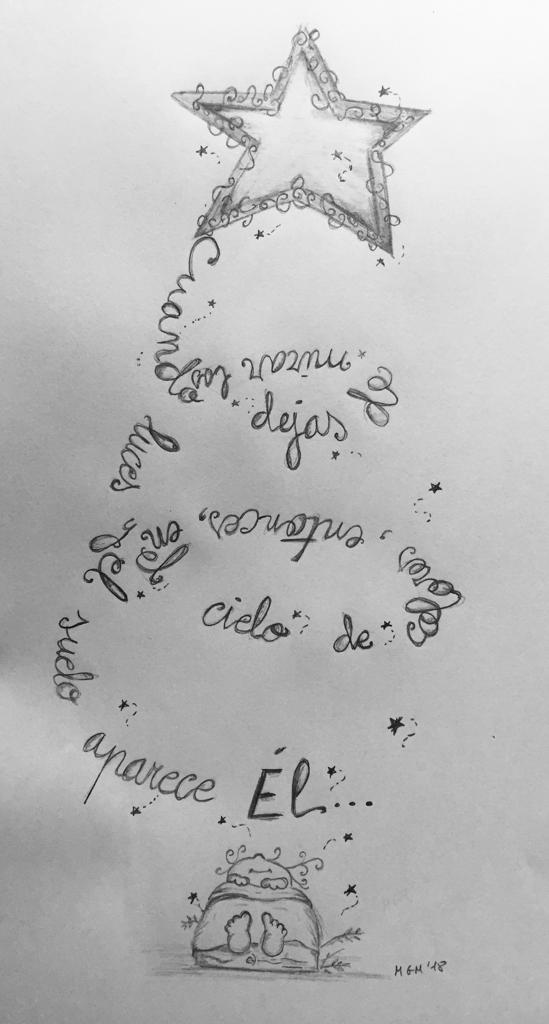 Cuando dejas de
mirar las
luces y el cielo de colores
, entonces,
en el
suelo aparece Él...
MGM '18